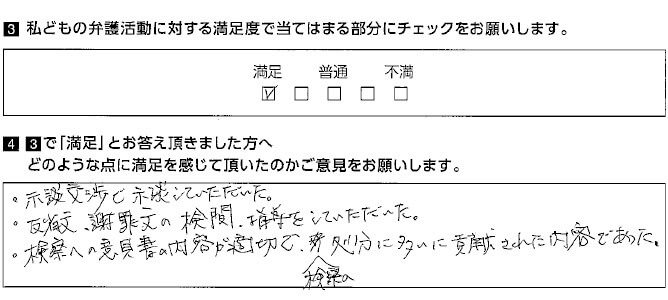 3 私どもの弁護活動に対する満足度で当てはまる部分にチェックをお願いします。
満足 普通 不満
4 3で「満足」とお答え頂きました方へ
どのような点に満足を感じて頂いたのかご意見をお願いします。
・示談交渉で示談していただいた。
・反省文、謝罪文の検閲、指導をしていただいた。
・検察への意見書の内容が適切で、処分に多いに貢献された内容であった。
検察の